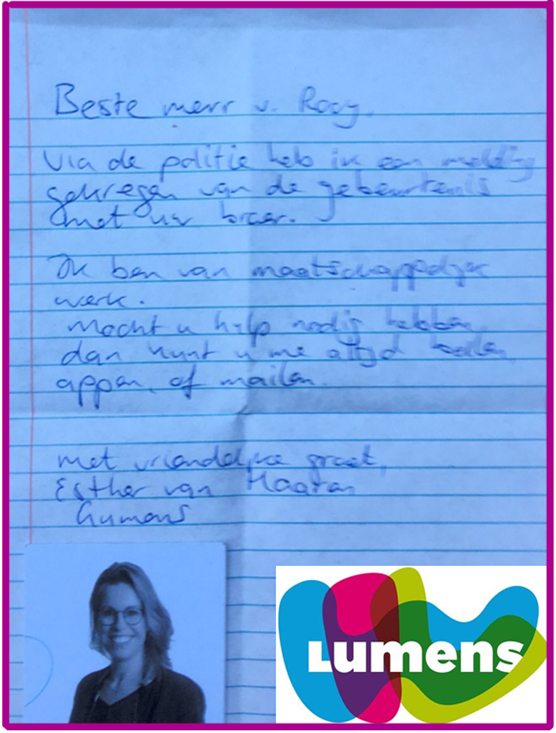 Beste merr v. Rooy,
Via de politie heb ik een melding
gekregen van de gebeurtenis
met uw broer.
Ik ben van maatschappelijk
werk.
Mocht u hulp nodig hebben,
dan kunt u me altijd bellen,
appen, of mailen.
Met vriendelijke groet,
Esther van Haaren
Lumens
Lumens